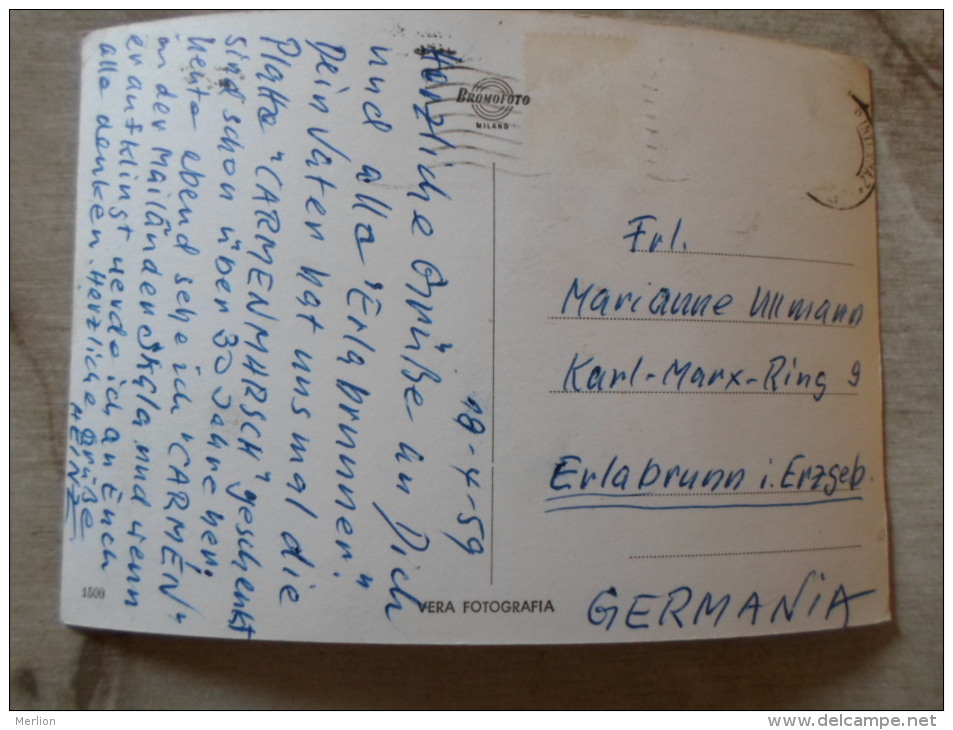 19-4-59
Herzliche Grüße an Dich
und alle "Erlabrunner"
Dein Vater hat uns mal die
Platte "CARMENMARSCH" geschenkt
sind schon über 30 Jahre her.
Heute abend sehe ich "CARMEN"
in der Mailänder Skala und wenn
er aufklingt werde ich an Euch
alle denken. Herzliche Grüße
HEINZ
1500
BROMOFOTO
MILANO
VERA FOTOGRAFIA
Frl.
Marianne Ullmann
Karl-Marx-Ring 9
Erlabrunn i. Erzgeb.
GERMANIA
Merlion
www.delcampe.net